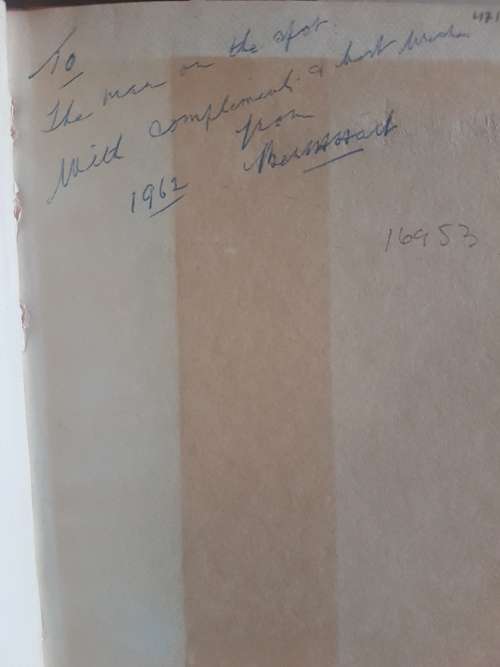 To
The man on the spot.
With compliments & best wishes
from
1962
16953